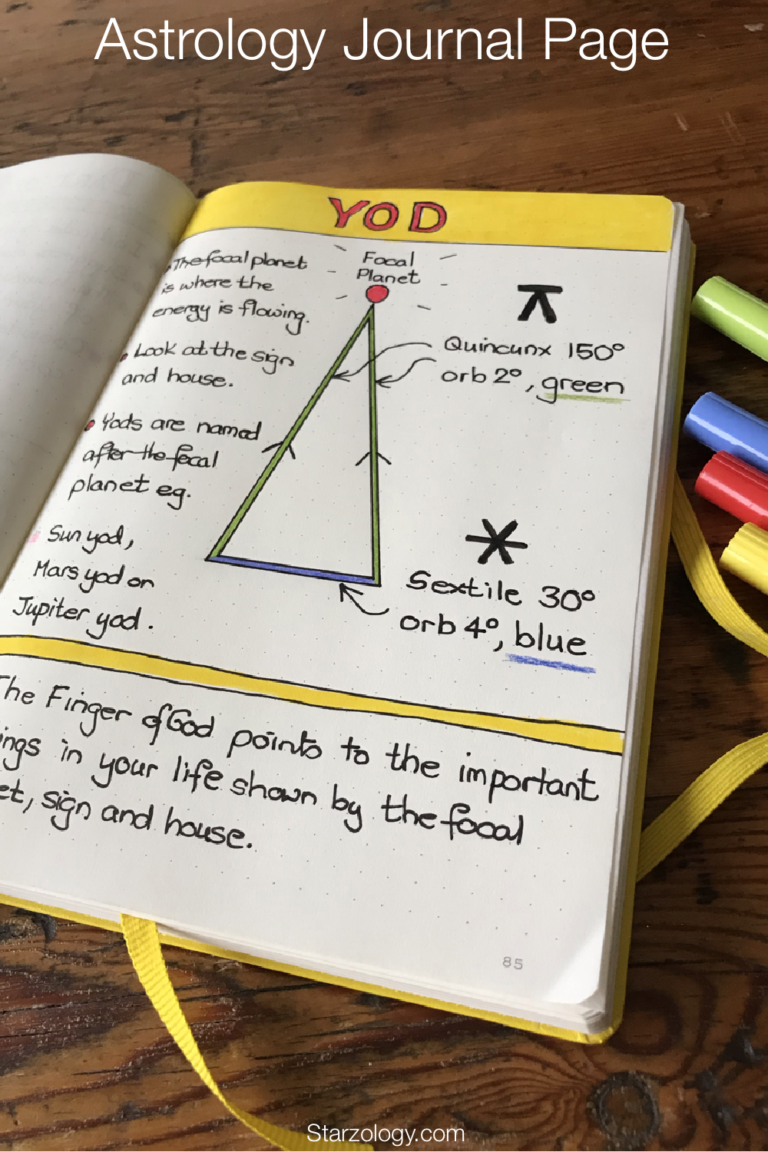 Astrology Journal Page
YOD
The focal planet
is where the
energy is flowing.
Look at the sign
and house.
Yods are named
after the focal
planet eg.
Sun yod,
Mars yod or
Jupiter yod.
Focal
Planet
Quincunx 150°
orb 2°, green
Sextile 30°
orb 4°, blue
The Finger of God points to the important
in your life shown by the focal
sign and house.
85
Starzology.com